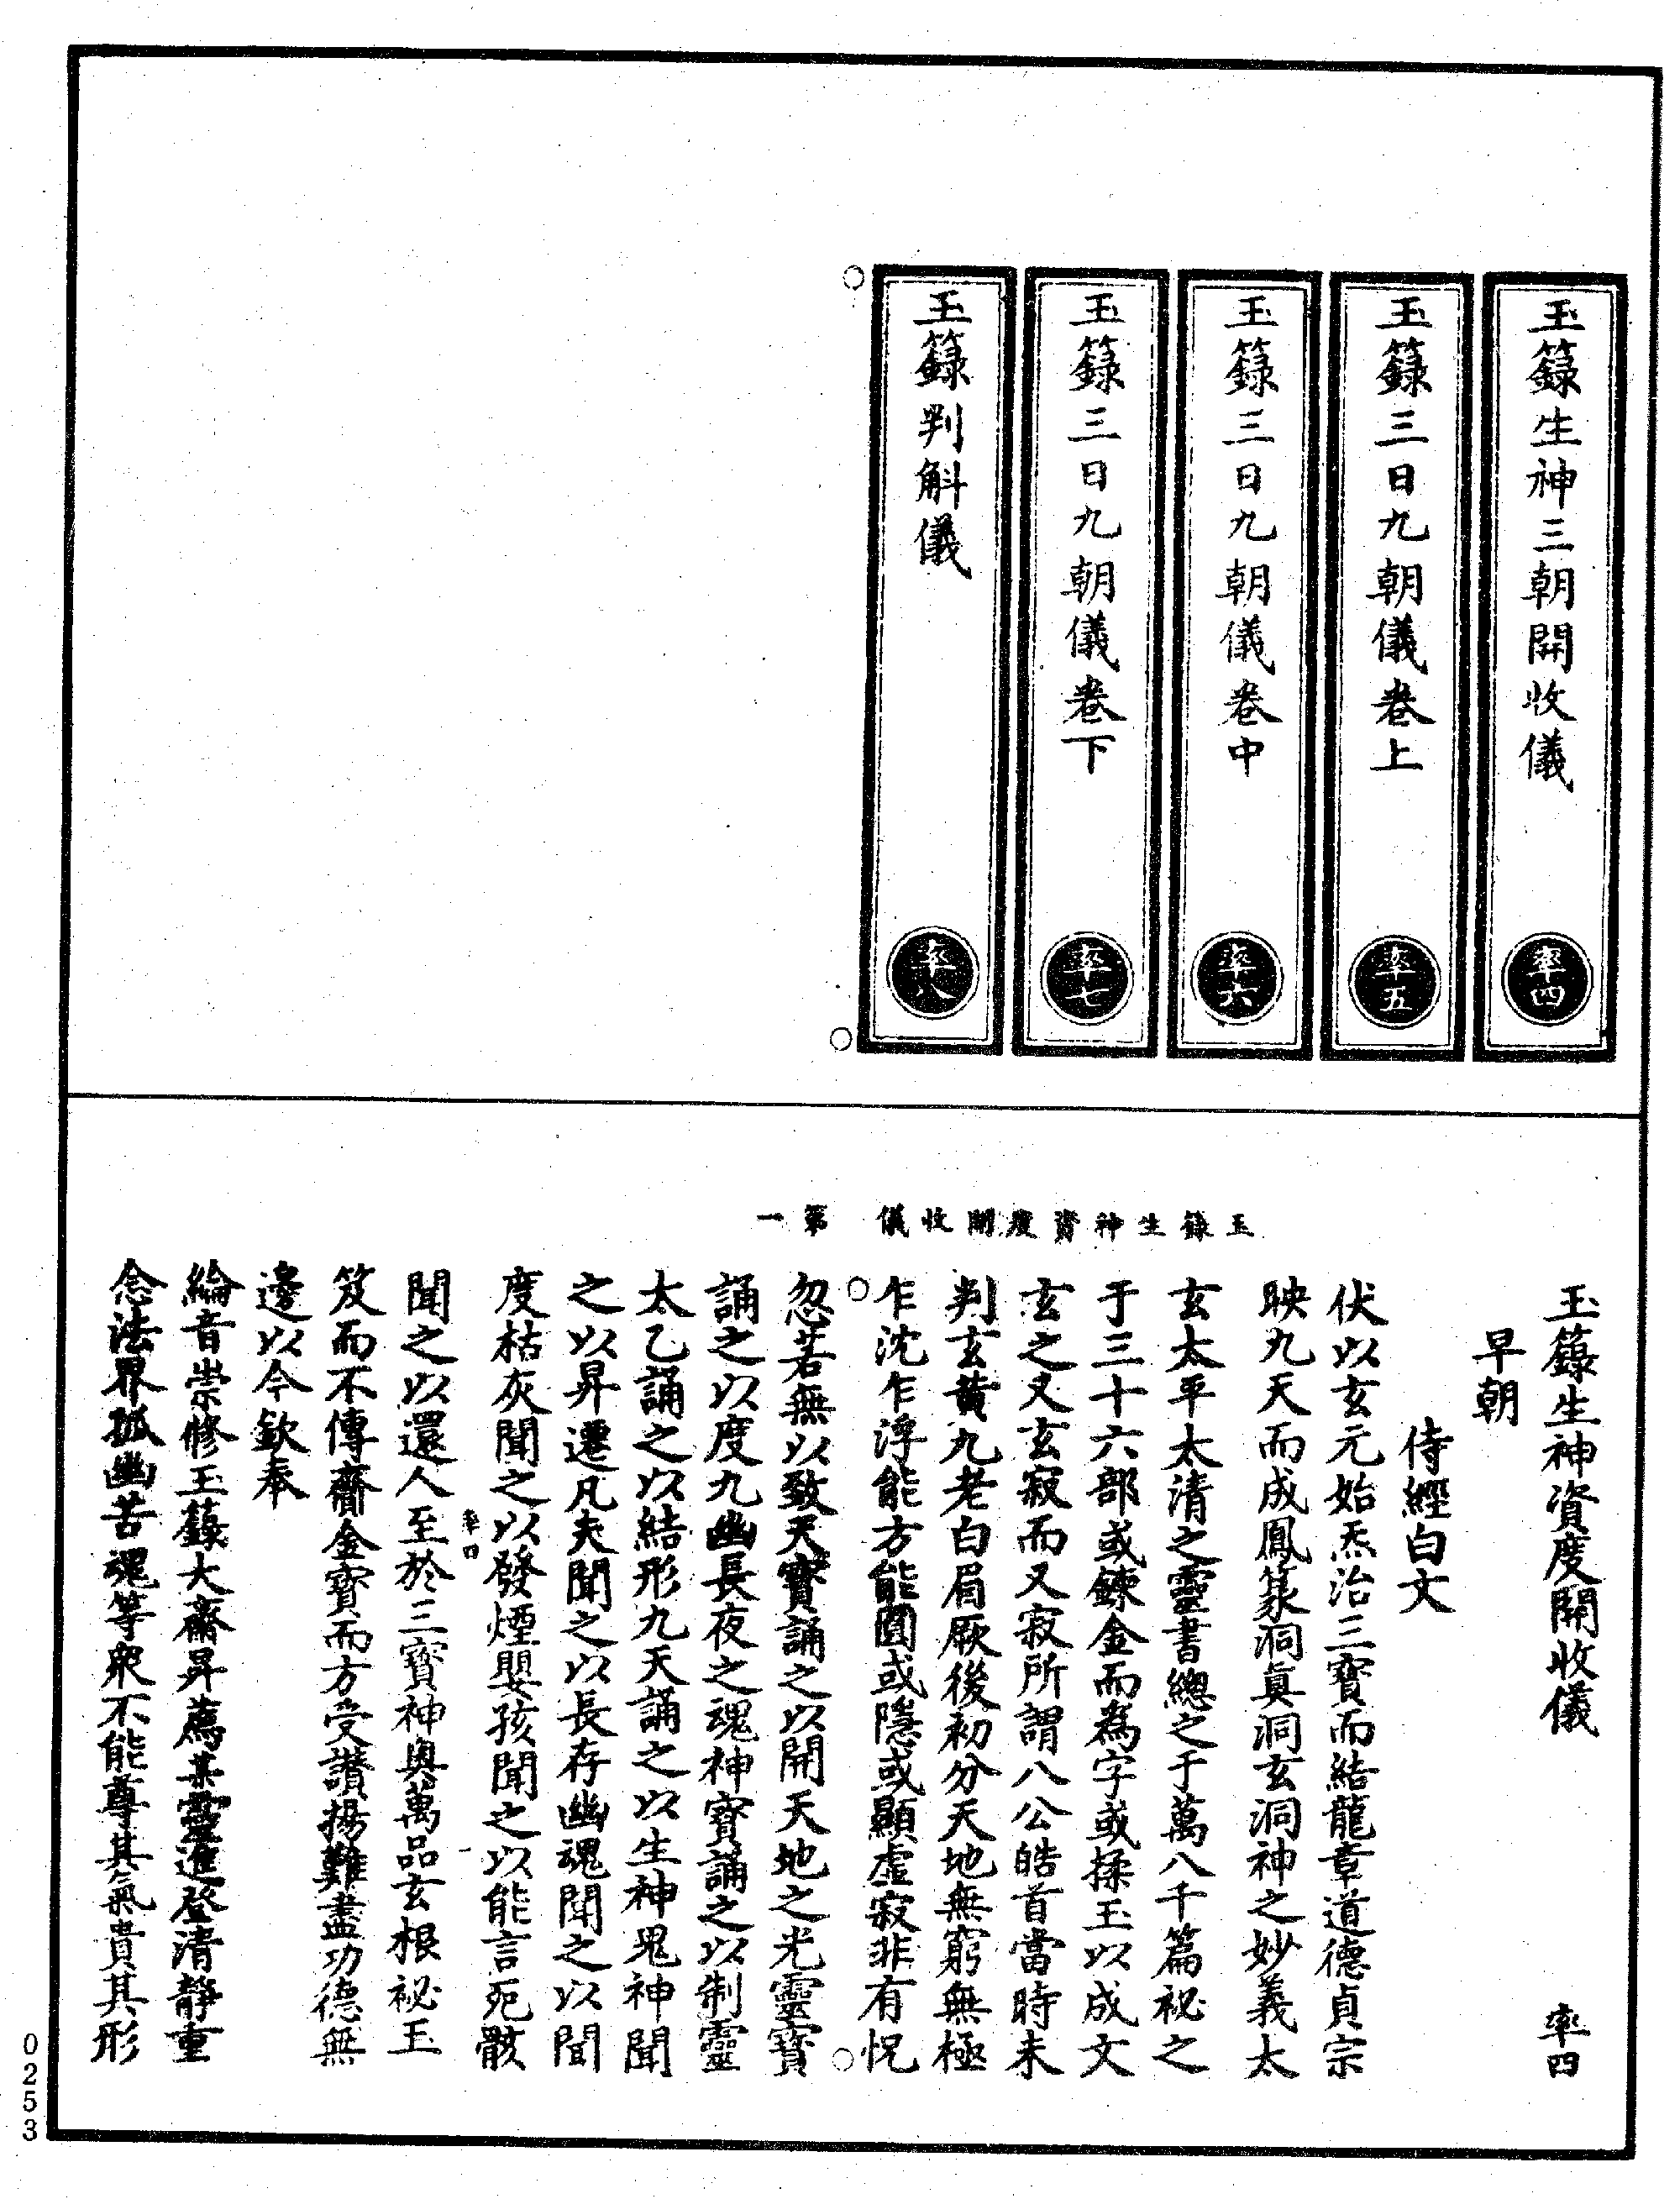 玉籙生神三朝開收儀
率四
玉籙三日九朝儀卷上
率五
玉籙三日九朝儀卷中
率六
玉籙三日九朝儀卷下
率七
玉籙判斛儀
率八
玉籙生神資度開收儀 第一
玉籙生神資度開收儀 率四
早朝
侍經白文
伏以玄元始炁治三寶而結龍章道德貞宗
映九天而成鳳篆洞真洞玄洞神之妙義太
玄太平太清之靈書總之于萬八千篇祕之
于三十六部或鍊金而為字或揉玉以成文
玄之又玄寂而又寂所謂八公皓首當時未
判玄黃九老白眉厥後初分天地無窮無極
乍沈乍浮能方能圓或隱或顯虛寂非有怳
忽若無以致天寶誦之以開天地之光靈寶
誦之以度九幽長夜之魂神寶誦之以制靈
太乙誦之以結形九天誦之以生神鬼神聞
之以昇遷凡夫聞之以長存幽魂聞之以開
度枯灰聞之以發煙嬰孩聞之以能言死骸
率四 一
聞之以還人至於三寶神奧萬品玄根祕玉
笈而不傳齎金寶而方受讚揚難盡功德無
邊以今欽奉
綸音崇修玉籙大齋昇薦某靈進登清靜重
念法界孤幽苦魂等眾不能尊其氣貴其形
0253